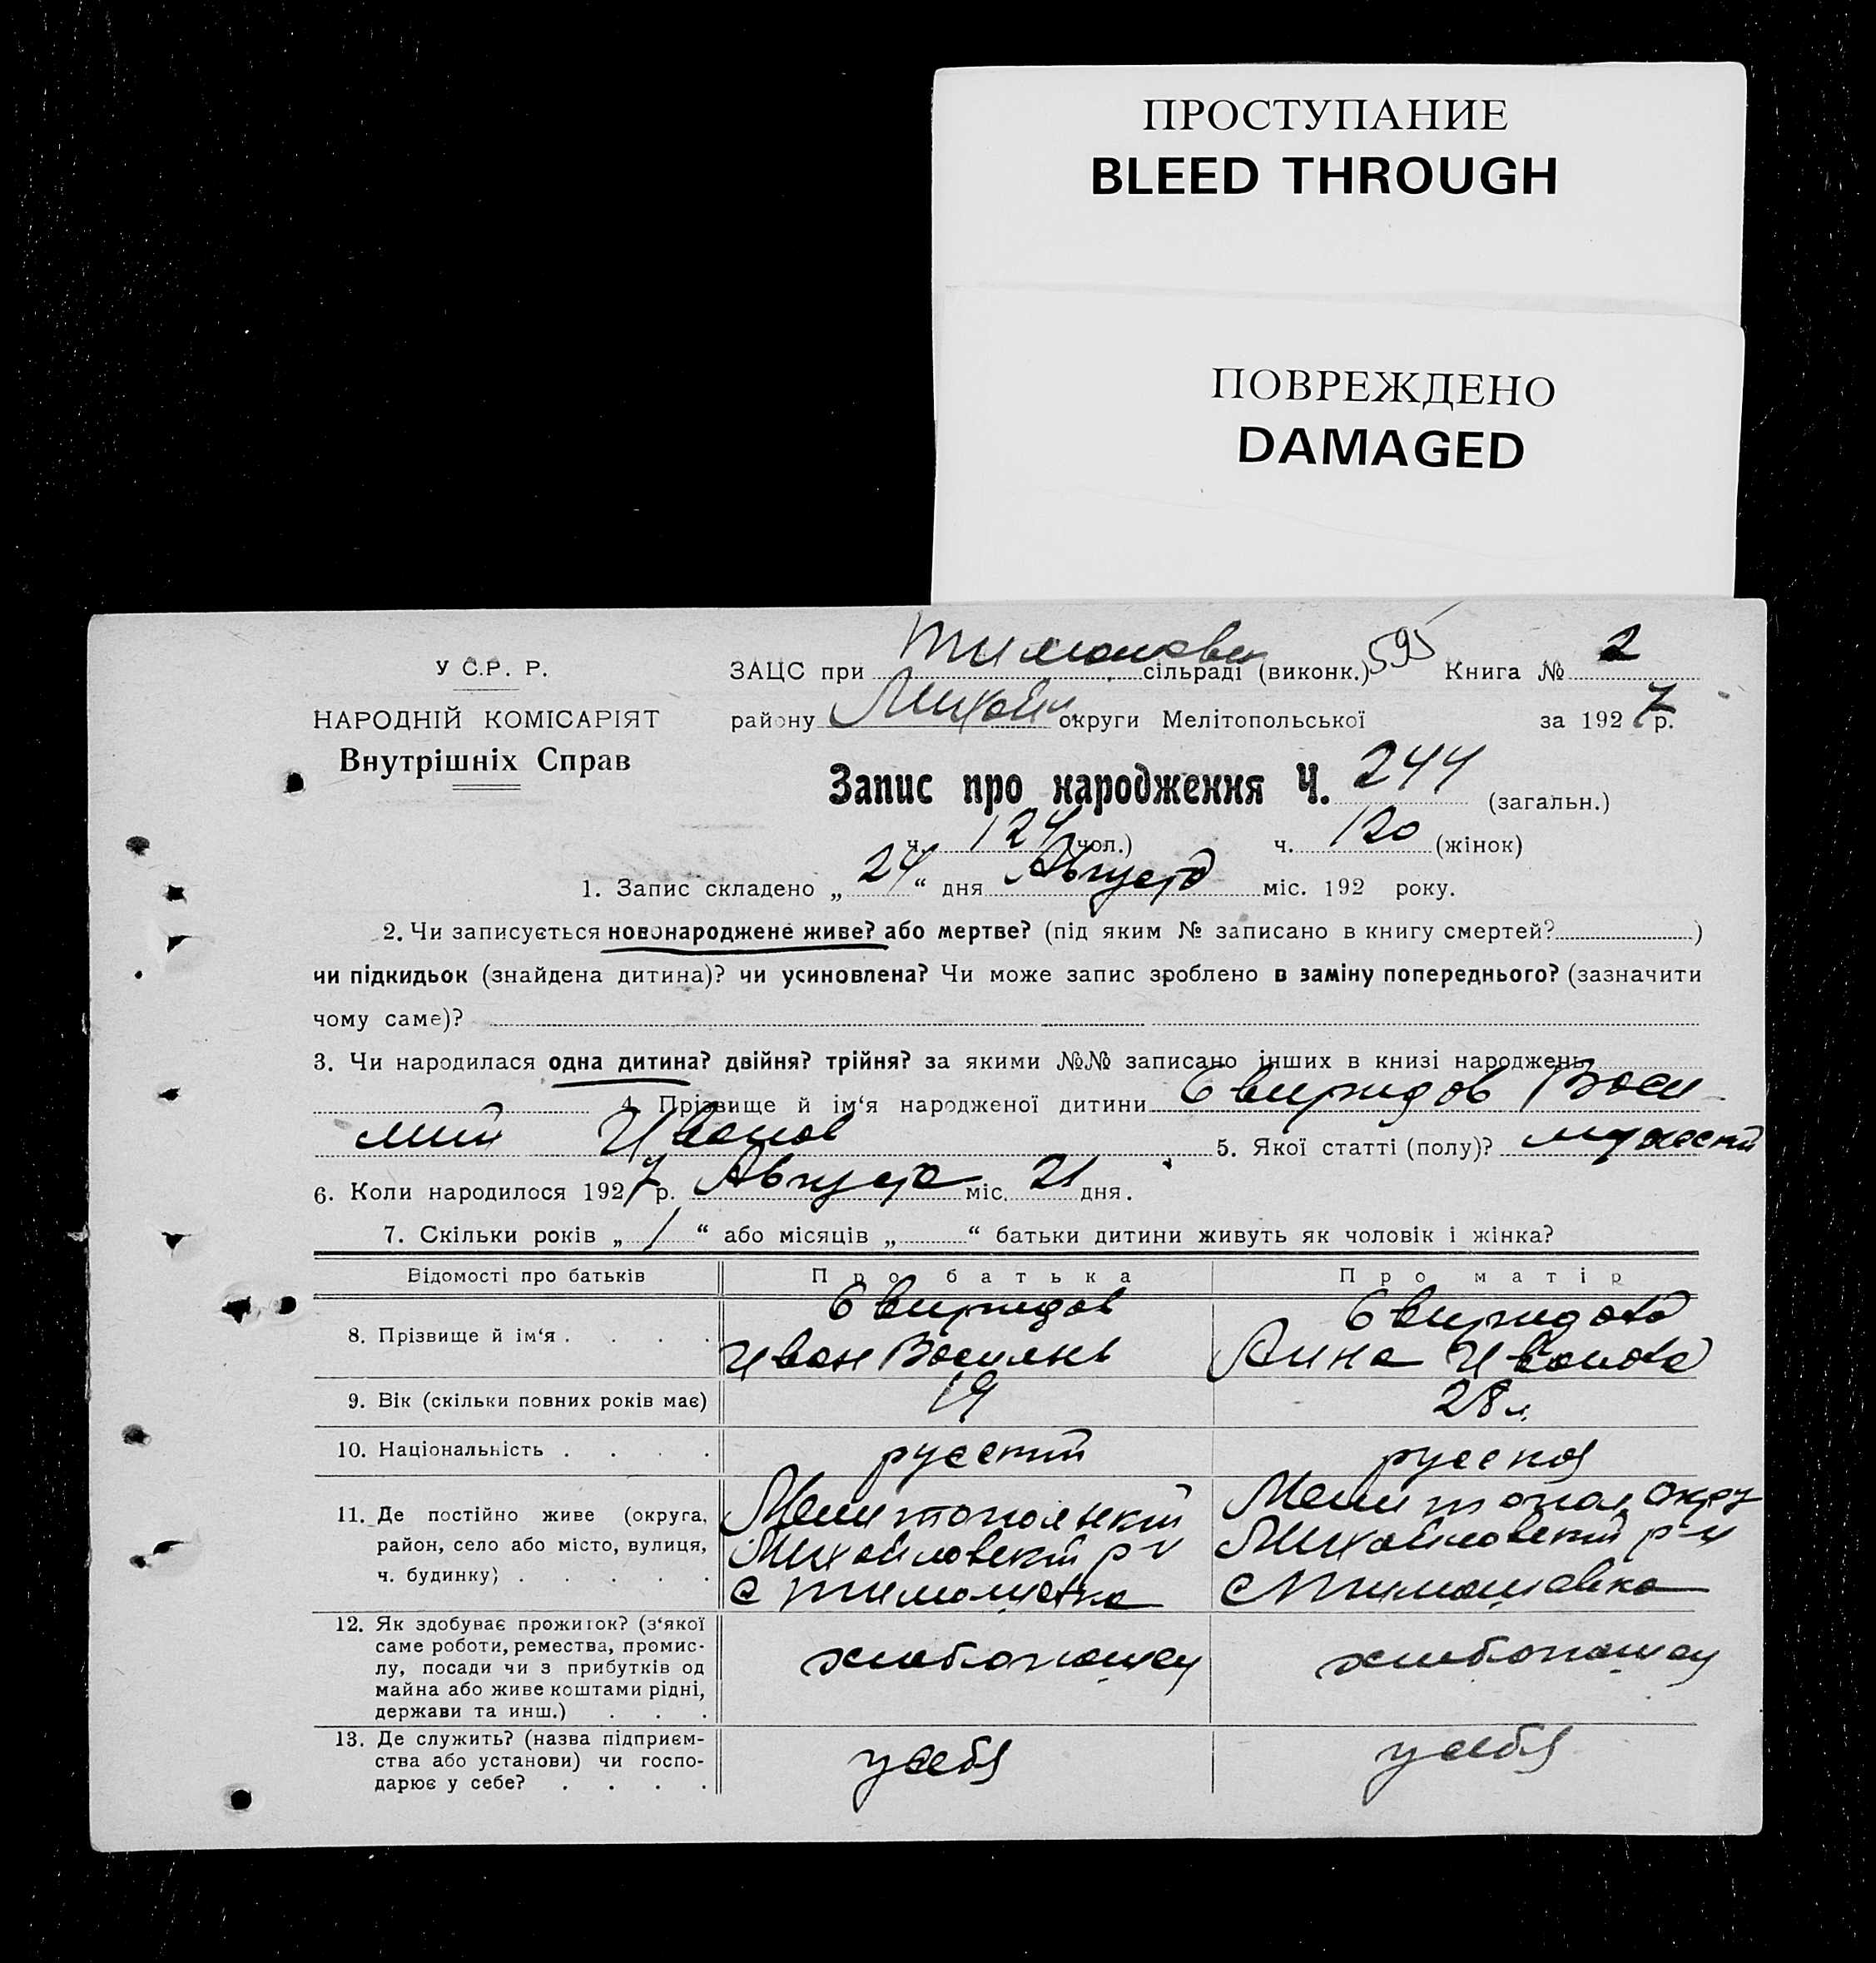 ПРОСТУПАНИЕ
BLEED THROUGH
ПОВРЕЖДЕНО
DAMAGED
У С.Р. Р.
НАРОДНІЙ КОМІСАРІЯТ
Внутрішніх Справ
ЗАЦС при сільраді (виконк.) 595 Книга № 2
району Михайл округи Мелітопольської за 1927 р.
Запис про народження Ч. 244 (загальн.)
ч. 124 (чол.) ч. 120 (жінок)
1. Запис складено „ 24 “ дня Августа міс. 192 року.
2. Чи записується новонароджене живе? або мертве? (під яким № записано в книгу смертей? )
чи підкидьок (знайдена дитина)? чи усиновлена? Чи може запис зроблено в заміну попереднього? (зазначити
чому саме)?
3. Чи народилася одна дитина? двійня? трійня? за якими №№ записано інших в книзі народжень
4. Прізвище й ім‘я народженої дитини Свиридов Васи-
лий Иванов 5. Якої статті (полу)? мужской
6. Коли народилося 1927 р. Августа міс. 21 дня.
7. Скільки років „ 1 “ або місяців „ “ батьки дитини живуть як чоловік і жінка?
Відомості про батьків Про батька Про матір
8. Прізвище й ім‘я . . . . Свиридов Иван Василев Свиридова Анна Иванова
9. Вік (скільки повних років має) 19 28 л.
10. Національність . . . . русский русская
11. Де постійно живе (округа, Мелитопольский Мелитопол. округ
район, село або місто, вулиця, Михайловский р-н Михайловский р-н
ч. будинку) . . . . . с Тимошевка с Тимошевка
12. Як здобуває прожиток? (з‘якої
саме роботи, ремества, промис-
лу, посади чи з прибутків од хлебопашец хлебопашец
майна або живе коштами рідні,
держави та инш.) . . .
13. Де служить? (назва підприєм-
ства або установи) чи госпо- у себя у себя
дарює у себе? . . . .